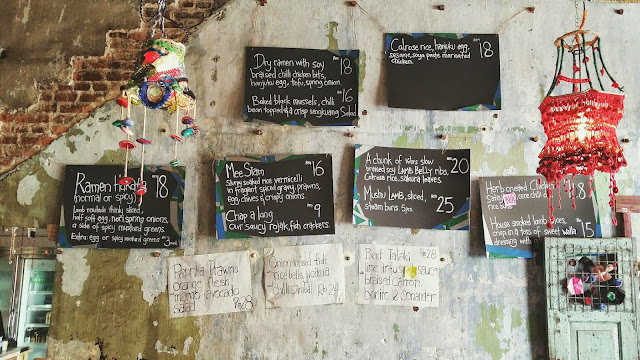 Dry ramen with soy
braised chilli chicken bits,
hanjuku egg, tofu, spring onion.
18
Baked black mussels, chilli
bean topped & crisp sengkuang Salad
16
Calrose rice, hanjuku egg,
sesame, soya paste marinated
chicken.
18
Ramen
(normal or spicy)
Lamb roulade thinly sliced,
half soft egg, nori, spring onions
a side of spicy mustard greens
Extra: egg or spicy mustard greens 3
Mee Siam 16
Slurpy soaked rice vermicelli
in fragrant spiced gravy, prawns,
egg, chives & crispy onions.
Chap a lang 9
our saucy rojak, fish crackers
A chunk of 12hrs slow 20
braised soy LAMB BELLY ribs,
Calrose rice, sakura leaves.
Mushu LAMB, sliced, 25
steam buns. 5pcs
Herb crusted Chicken 18
rice
House smoked lamb slices,
crisp in a toss of sweet
dressing with 15
Paprika Prawns
orange flesh
mango avocado
Salad RM28
fish
rice balls,
RM 24
Beef RM28
lime infused sauce
braised carrot
& coriander